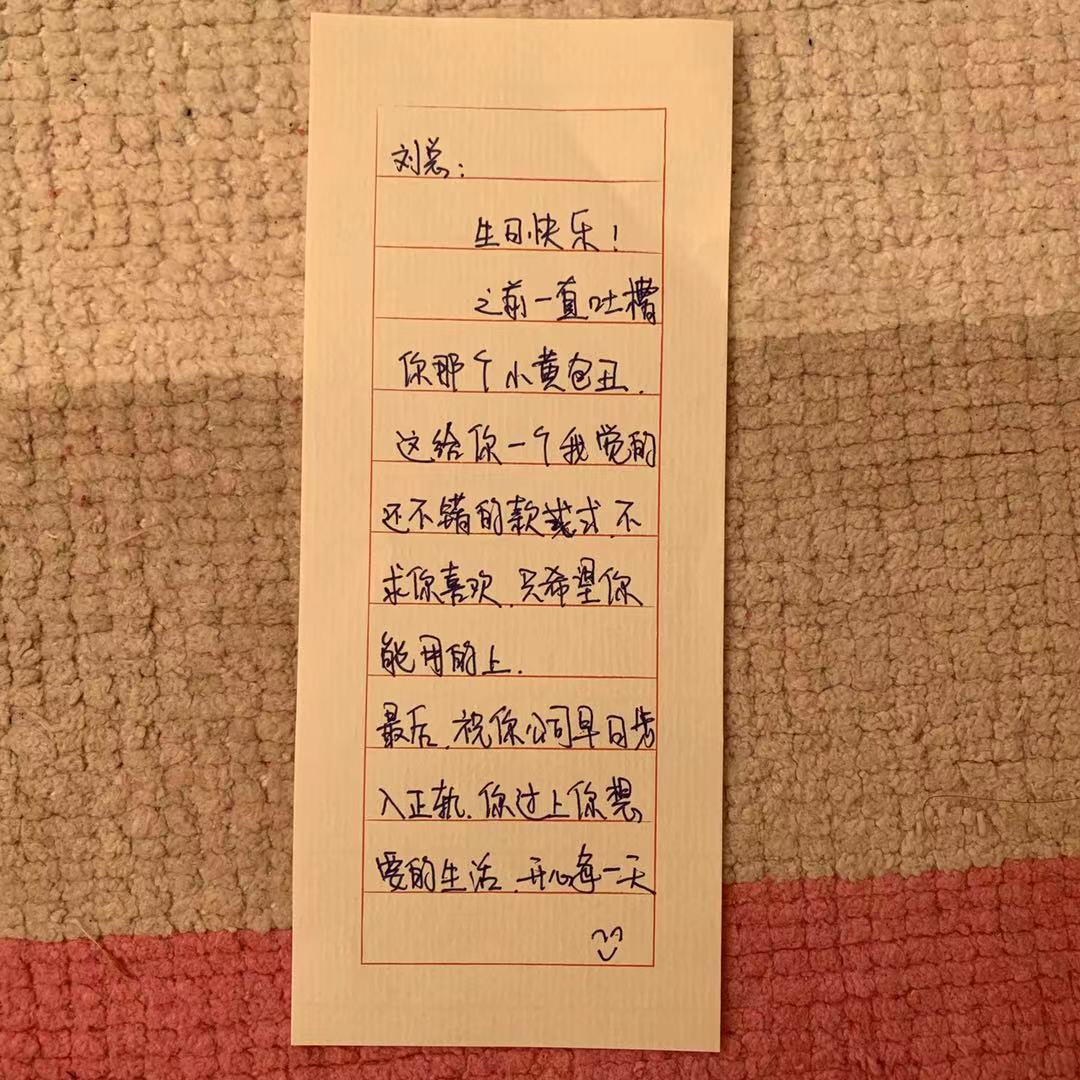 刘总：
生日快乐！
之前一直吐槽
你那个小黄包丑.
这给你一个我觉的
还不错的款式.不
求你喜欢.只希望你
能用的上.
最后.祝你公司早日步
入正轨.你过上你想
要的生活.开心每一天